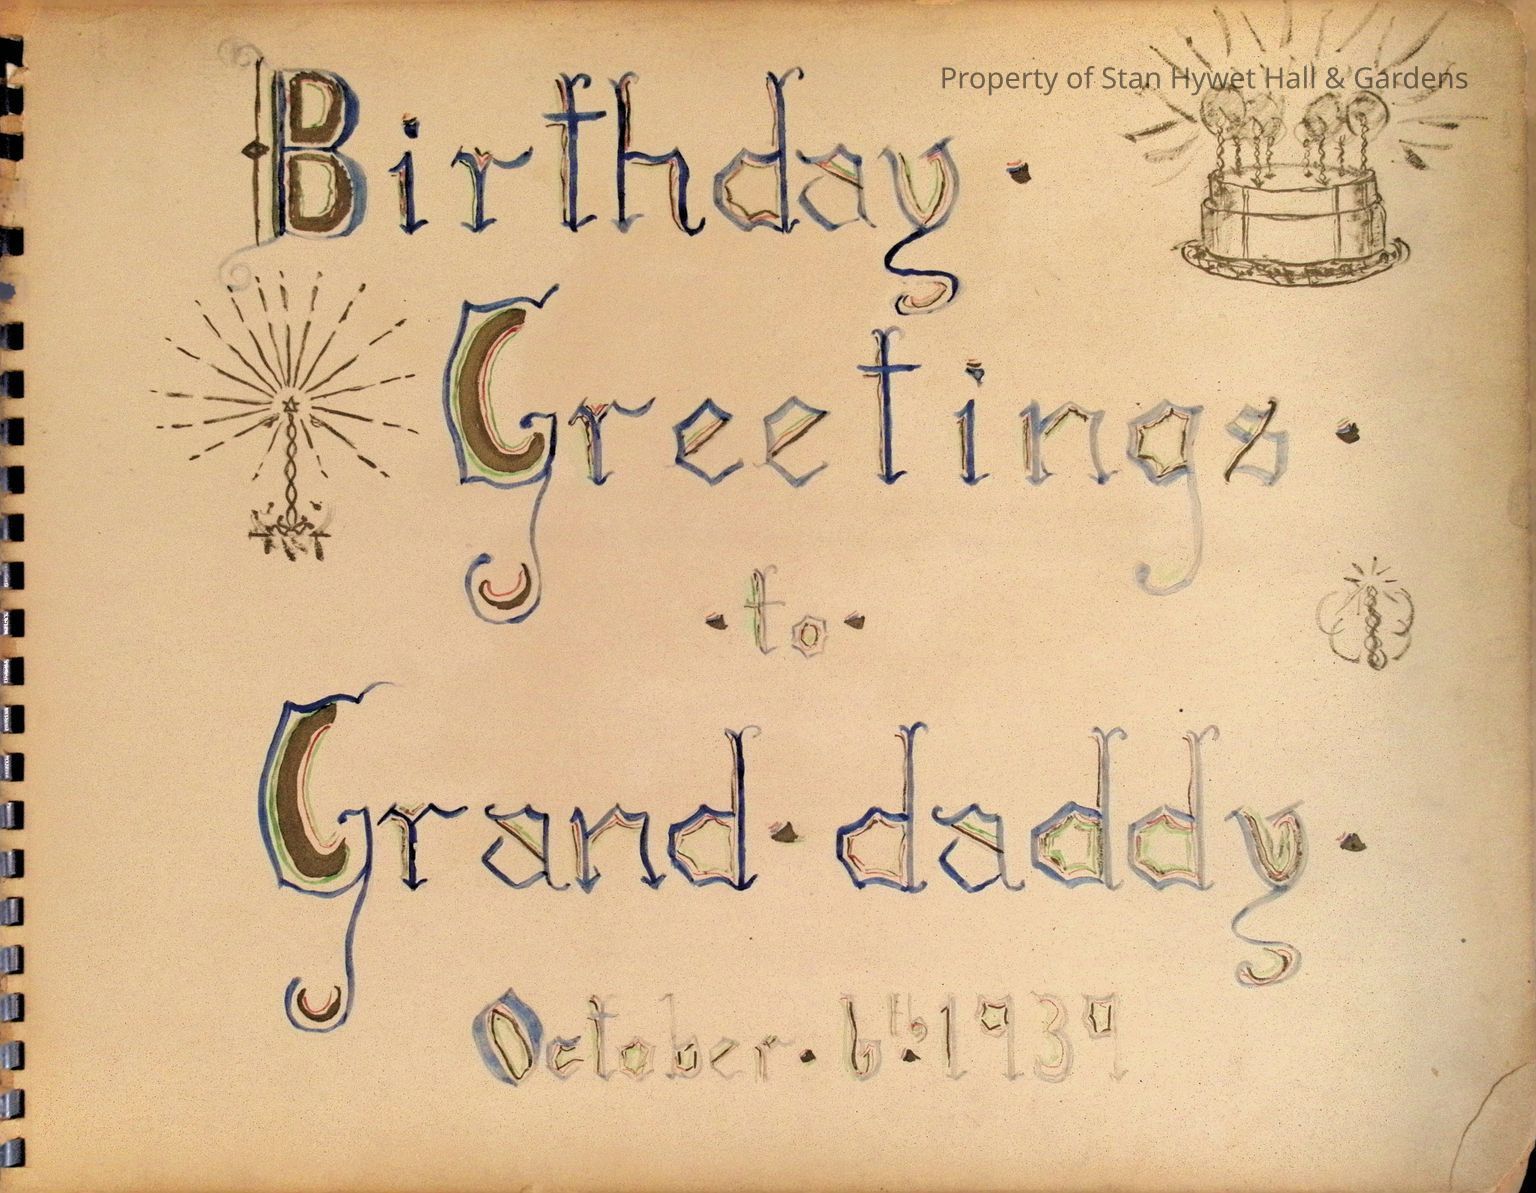 Property of Stan Hywet Hall & Gardens
Birthday ·
Greetings ·
· to ·
Grand · daddy ·
October · 6th · 1939